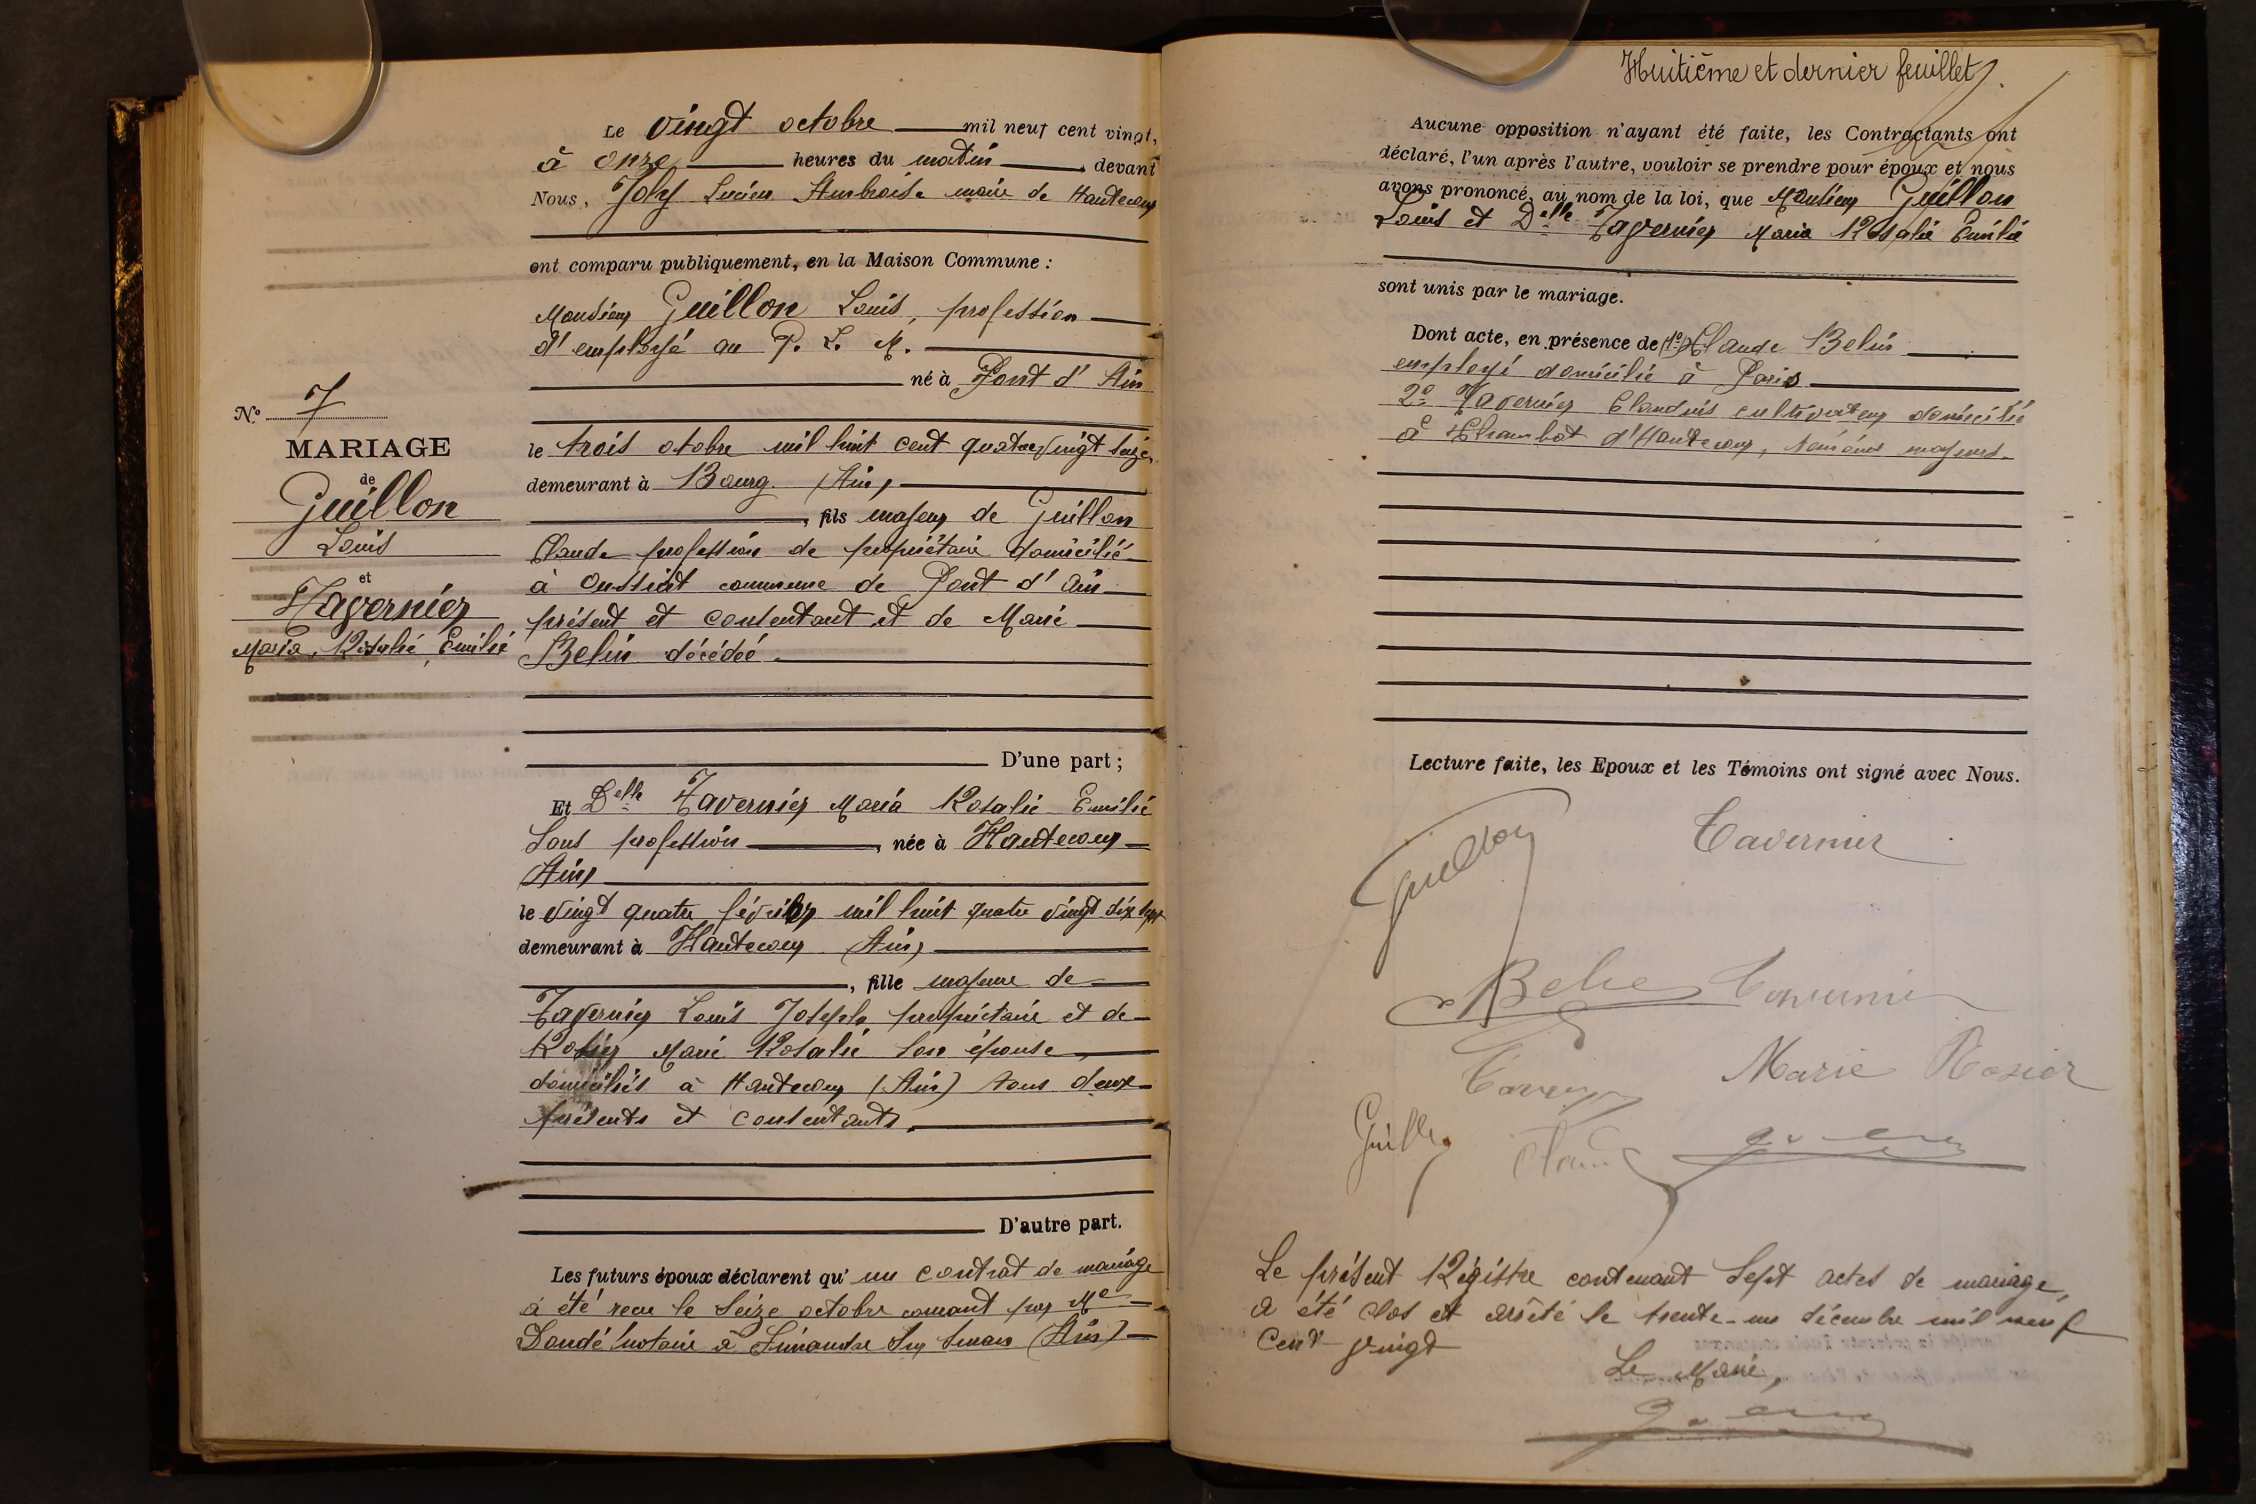 Le vingt octobre mil neuf cent vingt,
à onze heures du matin, devant
Nous, Joly Lucien Ambroise maire de Hautecour
ont comparu publiquement, en la Maison Commune :
Monsieur Guillon Louis, profession
d'employé au P. L. M.
né à Pont d'Ain
le trois otobre mil huit cent quatre vingt seize
demeurant à Bourg (Ain)
, fils majeur de Guillon
Claude profession de propriétaire domicilié
à Oussiat commune de Pont d'Ain
présent et consentant et de Marie
Belin décédée.
D'une part ;
Et Delle Tavernier Maria Rosalie Emilie
sans profession, née à Hautecour
(Ain)
le vingt quatre février mil huit quatre vingt dix sept
demeurant à Hautecour (Ain)
, fille majeure de
Tavernier Louis Joseph propriétaire et de
Rosier Marie Rosalie son épouse
domiciliés à Hautecour (Ain) tous deux
présents et consentants.
D'autre part.
Les futurs époux déclarent qu'un contrat de mariage
a été recu le seize octobre courant par Me
notaire à Simandre sur Suran (Ain)
N° 7
MARIAGE
de
Guillon
Louis
et
Tavernier
Maria, Rosalie, Emilie
Huitième et dernier feuillet.
Aucune opposition n'ayant été faite, les Contractants ont
déclaré, l'un après l'autre, vouloir se prendre pour époux et nous
avons prononcé, au nom de la loi, que Monsieur Guillon
Louis et Delle Tavernier Maria Rosalie Emilie
sont unis par le mariage.
Dont acte, en présence de 1° Claude Belin
employé domicilié à Paris
2° Tavernier Claudius cultivateur domicilié
à Chambot d'Hautecour, témoins majeurs.
Lecture faite, les Epoux et les Témoins ont signé avec Nous.
Guillon
Tavernier
Tavernier
Marie Rosier
Le présent Régistre contenant sept actes de mariage,
a été clos et arrêté le trente-un décembre mil neuf
cent vingt
Le Maire,